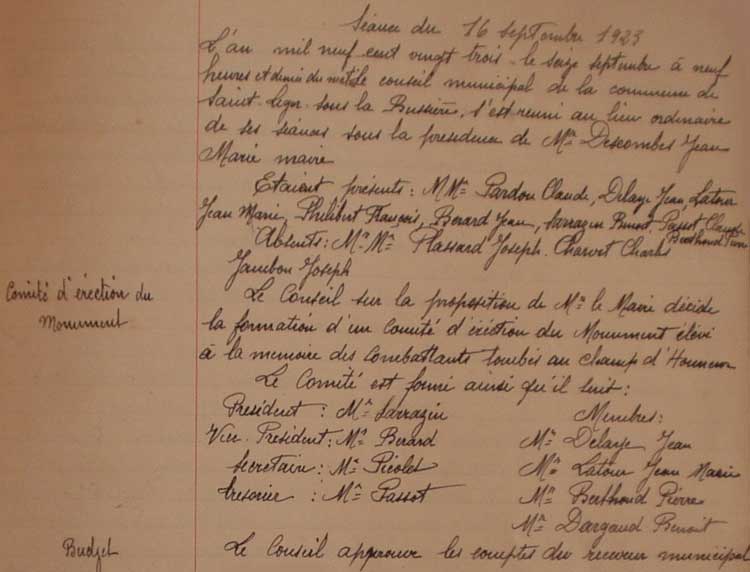 Séance du 16 septembre 1923
L'an mil neuf cent vingt trois - le seize septembre à neuf
heures et demie du matin le conseil municipal de la commune de
Saint-Léger sous la Bussière, s'est réuni au lieu ordinaire
de ses séances sous la présidence de Mr Descombes Jean
Marie maire
Etaient présents : M Mrs Pardon Claude, Delaye Jean, Latour
Jean Marie, Philibert François, Berard Jean, Sarrazin Benoit Passot Claude
Berthoud Pierre
Absents : Mr Mrs Plassard Joseph. Charvet Charles
Jambon Joseph
Comité d'érection du
Monument
Le Conseil sur la proposition de Mr le Maire décide
la formation d'un Comité d'érection du Monument élevé
à la mémoire des Combattants tombés au Champ d'Honneur
Le Comité est formé ainsi qu'il suit :
Président : Mr Sarrazin
Vice Président : Mr Berard
Secrétaire : Mr Picolet
Trésorier : Mr Passot
Membres :
Mr Delaye Jean
Mr Latour Jean Marie
Mr Berthoud Pierre
Mr Dargaud Benoit
Budget
Le Conseil approuve les comptes du receveur municipal